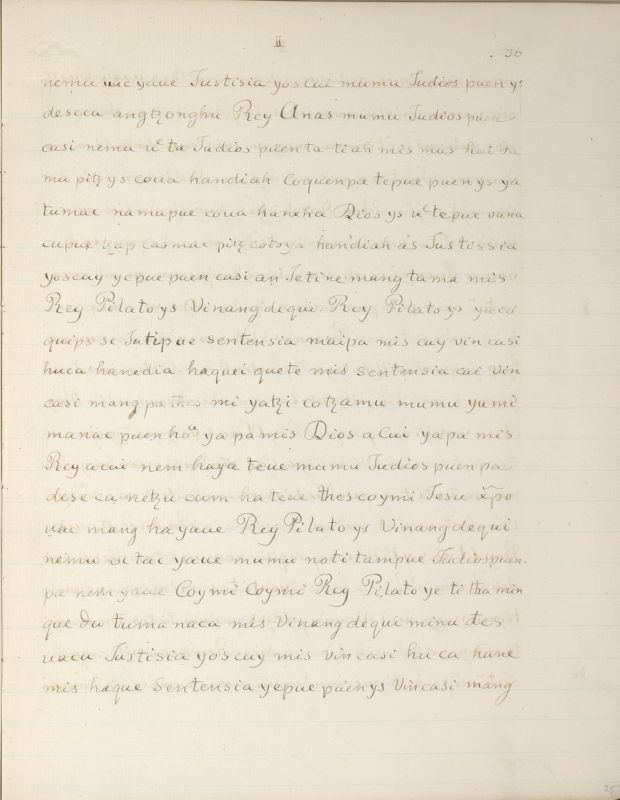 II
. 30
nemu uic yaue Justisia yos cui mumu Judios puen ys
deseca angtzonghu Rey Anas mumu Judios puen
casi nemu uᶜ ta Judios puen ta tiah mis mas hai ta
mu pitz ys coua handiah Coquenpa tepue puen ys ya
tumac namapue coua haneha Dios ys uᶜ tepue vara
cupue tzap casmac pitz cotsya handiah as Justissia
yoscuy yepue puen casi an Jetire mang tama mis
Rey Pilato ys Vinang dequi Rey Pilato ys yaca
quips se Jutipue sentensia maipa mis cuy vin casi
huca hanedia haquei quete mis sentensia cai vin
casi mang pa thes mi yatzi cotzamu mumu yumi
manac puen hoᵃ ya pa mis Dios a Cui yapa mis
Rey a cui nem haya teue mumu Judios puen pa
dese ca netzu cum ha teue thes coymi Jesu x̃po
uac mang ha yaue Rey Pilato ys Vinang dequi
nemu oi tac yaue mumu noti tampue Judios puen-
pa nem yaue Coymi Coymi Rey Pilato ye ti tha min
que du tuma naca mis Vinang dequi minu tes
uacu Justisia yos cuy mis vin casi hu ca hane
mis haque Sentensia yepue puen ys Vin casi mang
25